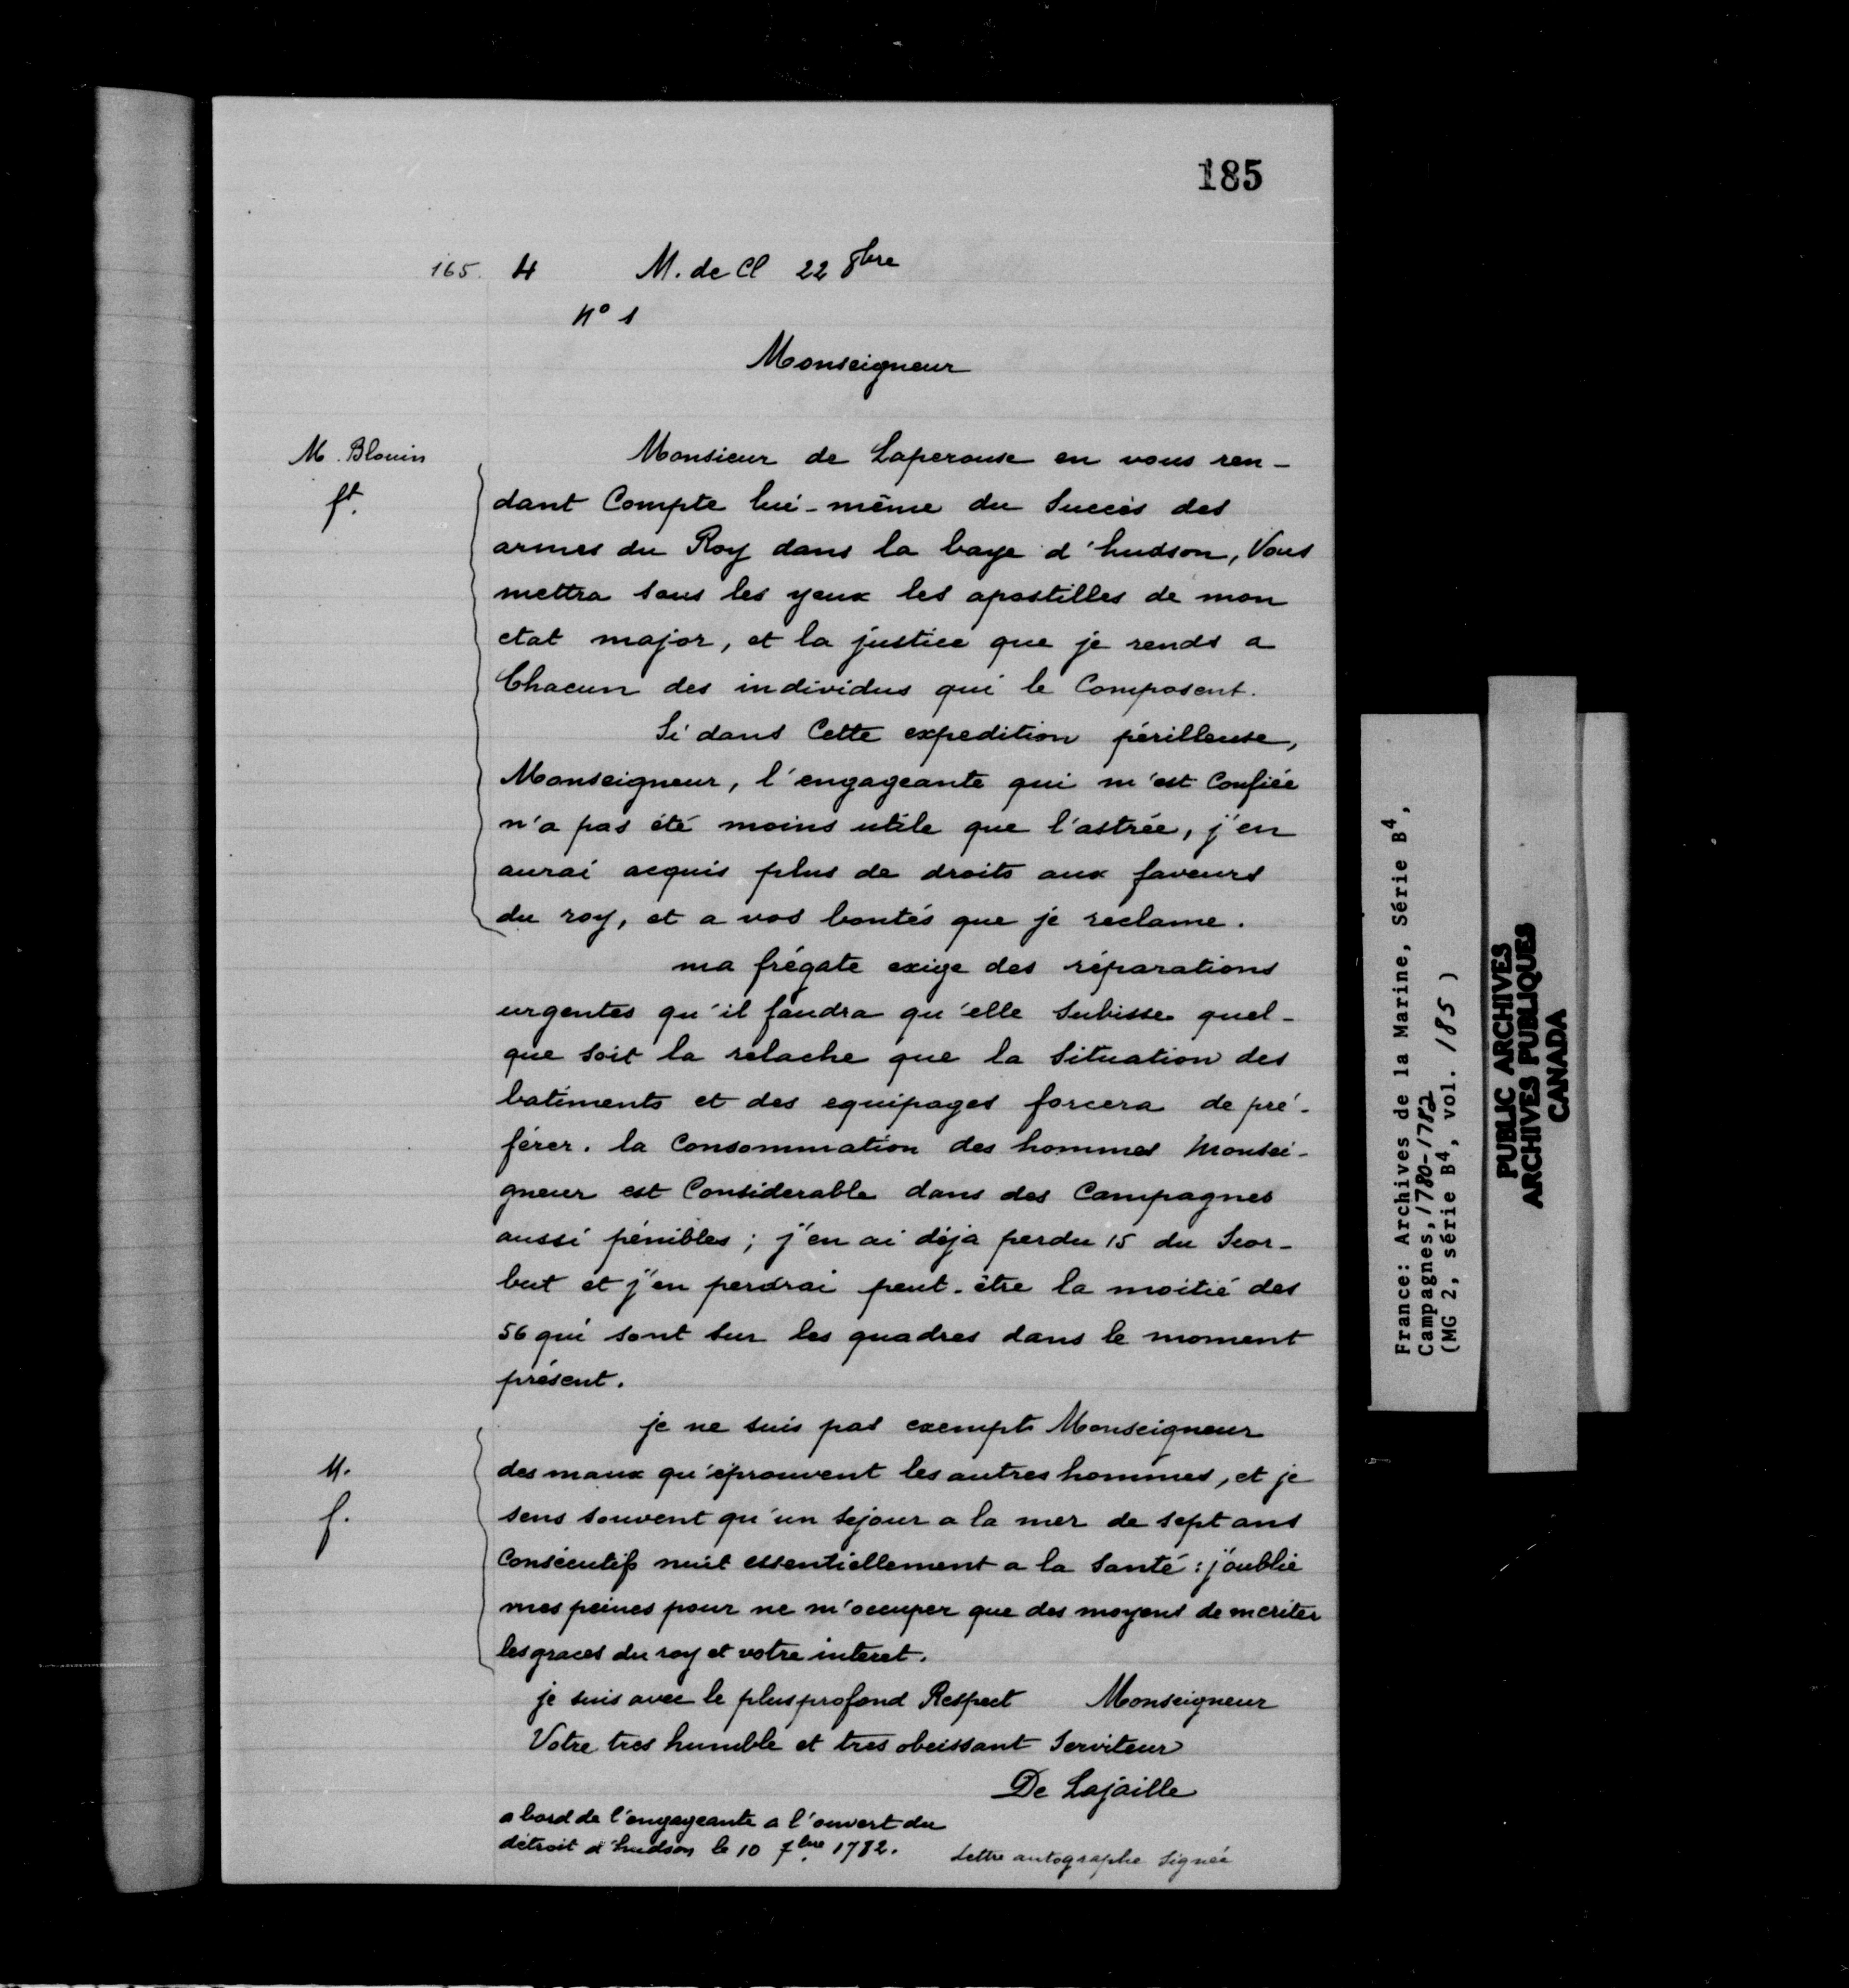 185
165. 4 M. de Cl 22 8bre
N° 1
Monseigneur
M. Blouin
ft.
Monsieur de Laperouse en vous ren-
dant Compte lui-même du Succès des
armes du Roy dans la baye d'hudson, Vous
mettra sous les yeux les apostilles de mon
etat major, et la justice que je rends a
Chacun des individus qui le Composent.
Si dans Cette expedition périlleuse,
Monseigneur, l'engageante qui m'est Confiée
n'a pas été moins utile que l'astrée, j'en
aurai acquis plus de droits aux faveurs
du roy, et a vos bontés que je reclame.
ma frégate exige des réparations
urgentes qu'il faudra qu'elle Subisse quel-
que soit la relache que la Situation des
batiments et des equipages forcera de pré-
férer. la Consommation des hommes Monsei-
gneur est Considerable dans des Campagnes
aussi pénibles; j'en ai déja perdu 15 du Scor-
but et j'en perdrai peut-être la moitié des
56 qui sont sur les quadres dans le moment
présent.
M.
f.
je ne suis pas exempt Monseigneur
des maux qu'éprouvent les autres hommes, et je
sens souvent qu'un Sejour a la mer de sept ans
Consécutifs nuit essentiellement a la Santé: j'oublie
mes peines pour ne m'occuper que des moyens de meriter
les graces du roy et votre interet.
je suis avec le plus profond Respect Monseigneur
Votre tres humble et tres obeissant Serviteur
De Lajaille
a bord de l'engageante a l'ouvert du
détroit d'hudson le 10 7bre 1782.
Lettre autographe Signée
France: Archives de la Marine, Série B4,
Campagnes, 1780-1782
(MG 2, série B4, vol. 185)
PUBLIC ARCHIVES
ARCHIVES PUBLIQUES
CANADA